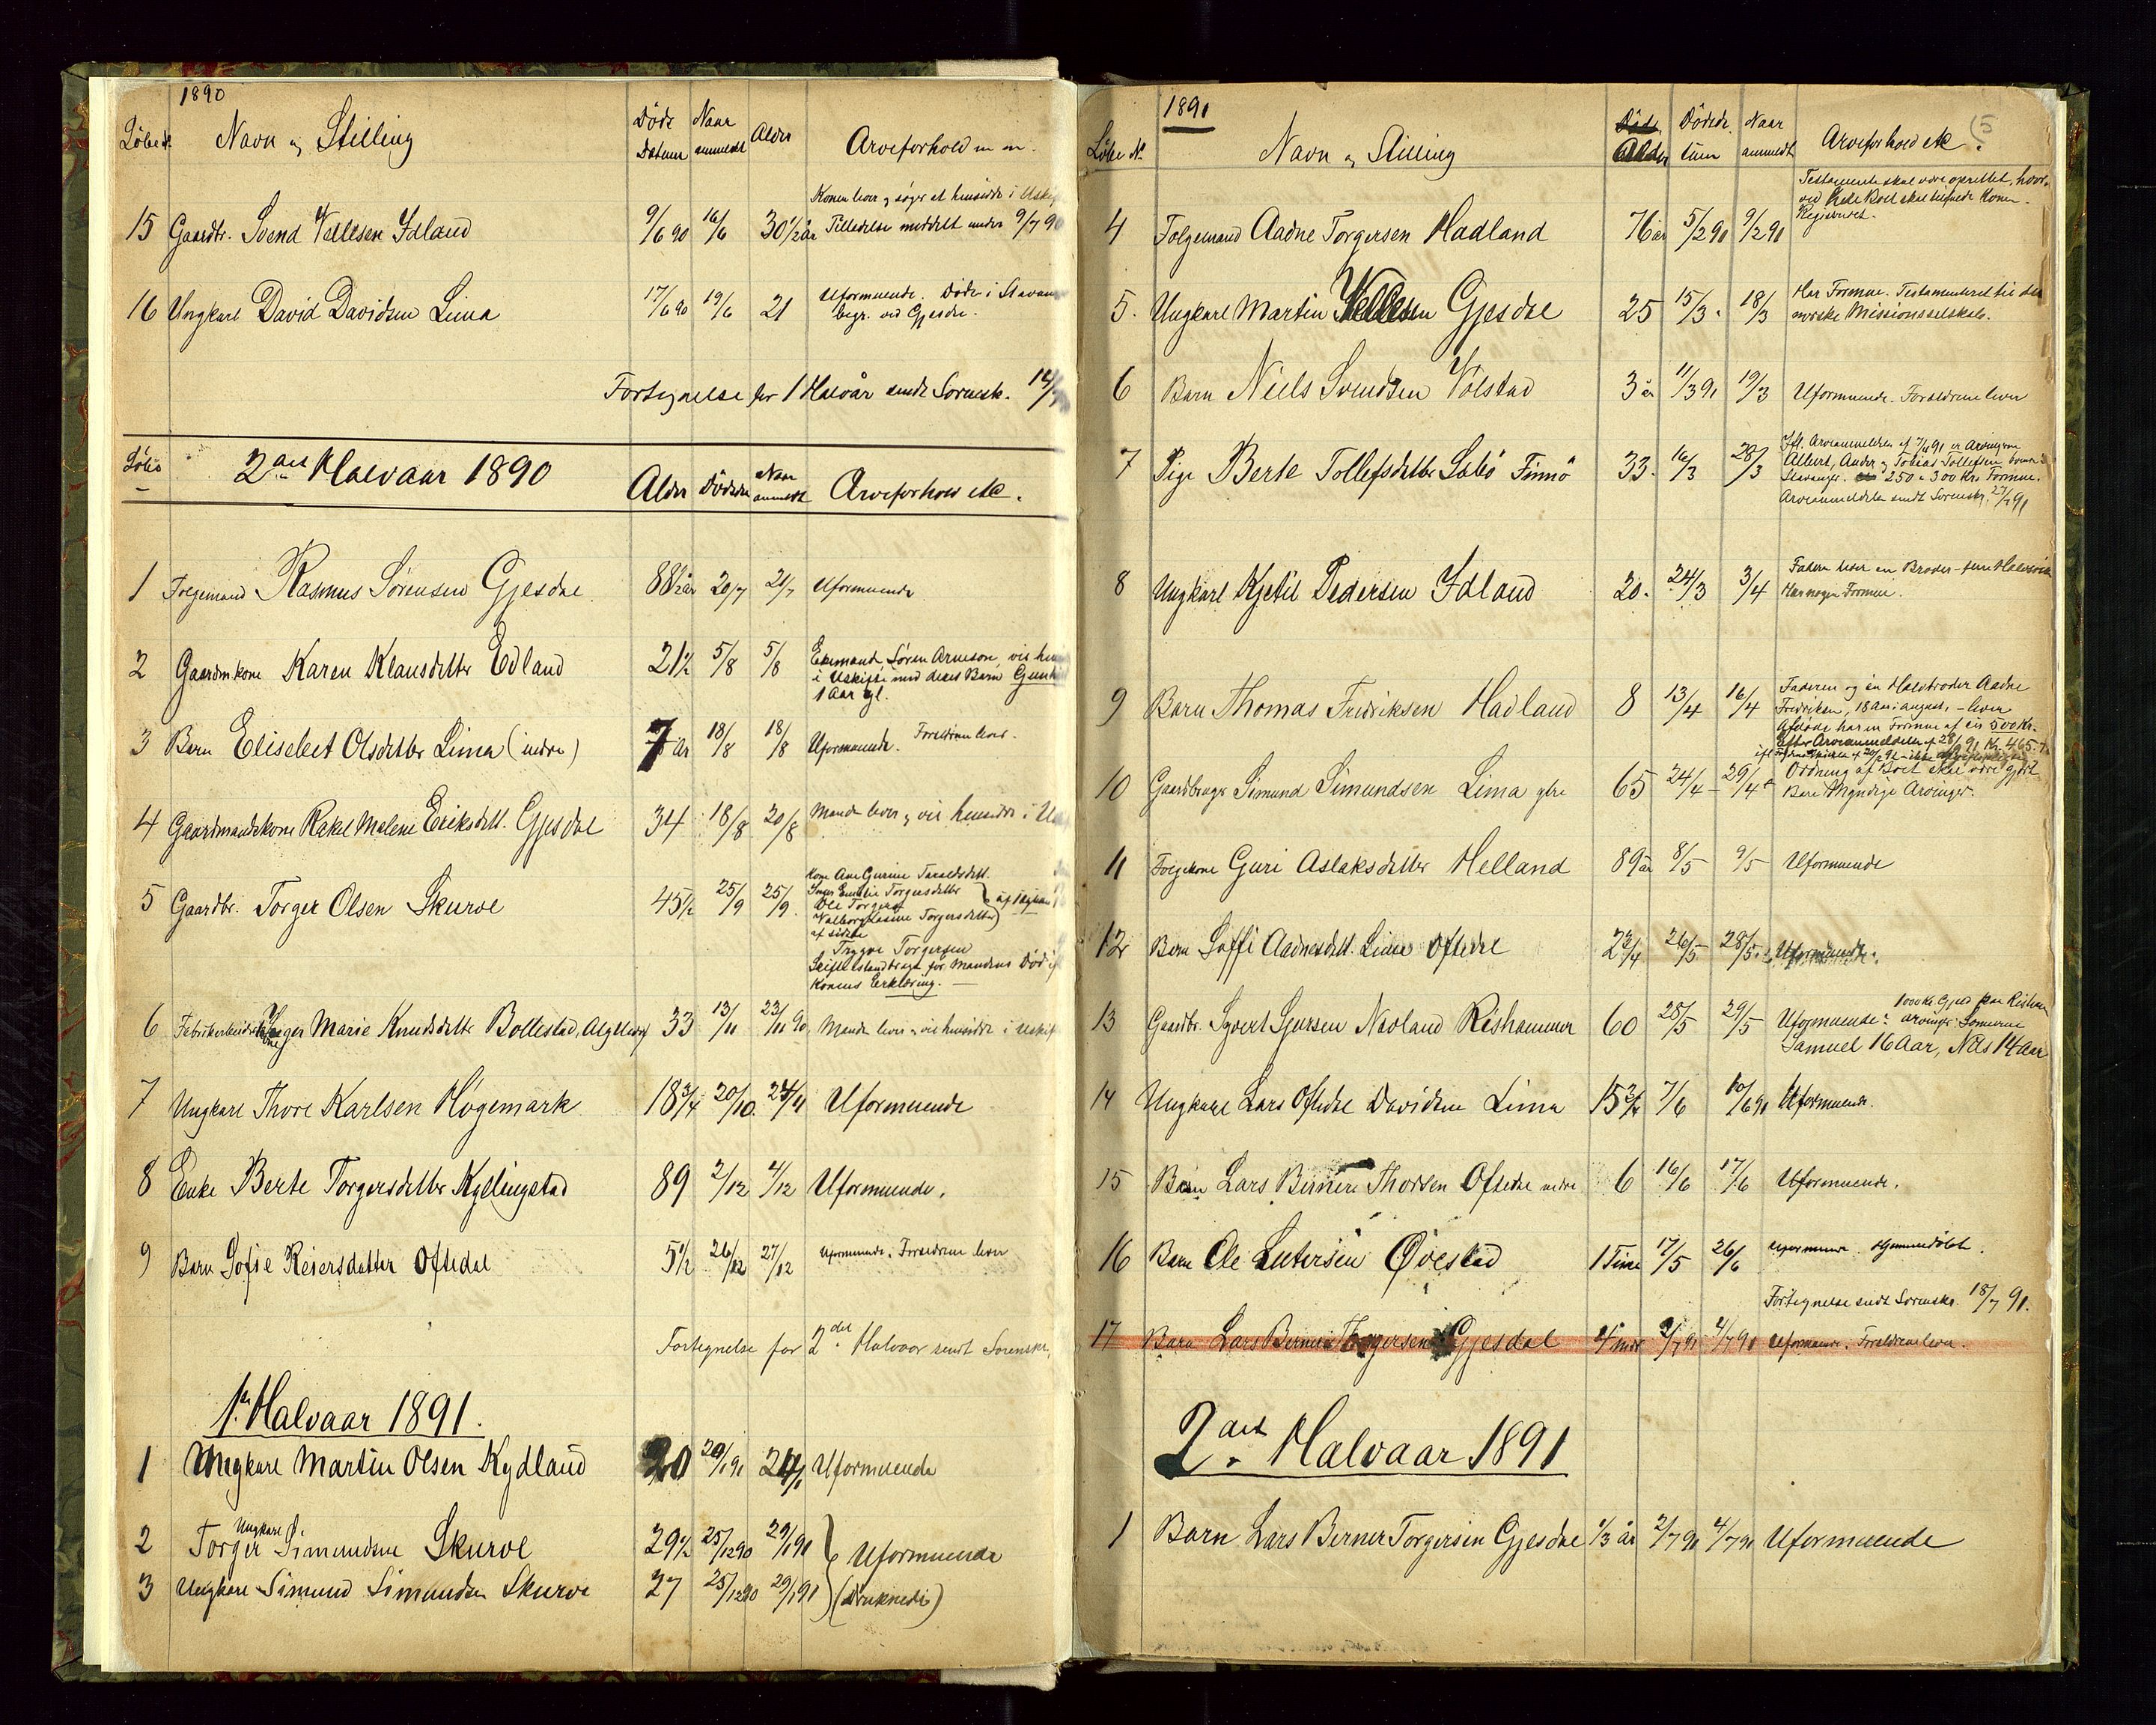 1890
Løbe N. Navn og Stilling Døds Datum Naar anmeldt Alder Arveforhold m. m.
Konen lever og søger at hensidde i Uskif
15 Gaardbr. Svend Vellesen Idland 9/6 90 16/6 30 1/2 år Tilladelse meddelt under 9/7 90
16 Ungkarl David Davidsen Lima 17/6 90 19/6 21 Uformuende. Døde i Stavan
begr. ved Gjesdal.
Fortegnelse for 1 Halvår sendt Sorensk. 14/7
Løbe 2det Halvaar 1890 Alder Dødsda Naar anmeldt Arveforhold etc.
1 Folgemand Rasmus Sørensen Gjesdal 88 1/2 år 20/7 21/7 Uformuende
2 Gaardm.kone Karen Klausdatter Edland 21 1/2 5/8 5/8 Ekemand, Søren Arneson, vil hen
i Uskifte med deres Barn Gunh
1 Aar gl.
3 Barn Elisebet Olsdatter Lima (indre) 7 år 18/8 18/8 Uformuende. Foreldrene lever.
4 Gaardmandskone Rakel Malene Eriksdatt. Gjesdal 34 18/8 20/8 Mande lever og vil hensidde i U
Kone Ane Gurine Taraldsdatt.
5 Gaardbr. Torger Olsen Skurve 45 1/2 25/9 25/9 Inger Emilie Torgersdatter
Ole Torgersen
Valborg Torgersdatter
af sidste
Trygve Torgersen
Skifte for Mandens Død
Konens Erklæring.
6 Fabrikarbeiderkone Inger Marie Knudsdatte Bollestad, Aalgaard 33 13/11 23/11 90 Mande lever og vil hensidde i Uskif
7 Ungkarl Thore Karlsen Høgemark 18 3/4 20/10. 24/11 Uformuende
8 Enke Berte Torgersdatter Kyllingstad 89 2/12 4/12 Uformuende.
9 Barn Sofie Reiersdatter Oftedal 5 1/2 26/12 27/12 Uformuende. Foreldrene lever
Fortegnelse for 2det Halvaar sendt Sorenskr.
1ste Halvaar 1891.
1 Ungkarl Martin Olsen Kydland 20 20/1 91 24/1 Uformuende
2 Ungkarl Torger Simundsen Skurve 29 1/2 25/12 90 29/1 91 Uformuende
3 Ungkarl Simund Simundsen Skurve 27 25/12 90 29/1 91 (druknede)
5
1891
Løbe N. Navn og Stilling Døds Alder Dødsda tum Naar anmeldt Arveforhold etc.
Testamente skal være oprettet, hvor-
ved hele Boet skal tilfalde Konen.
4 Folgemand Aadne Torgersen Hadland 76 år 5/2 91 9/2 91
5. Ungkarl Martin Vellesen Gjesdal 25 15/3. 18/3 Har Formue. Testamenteret til det
norske Missionsselskab.
6 Barn Niels Svendsen Volstad 3 år 11/3 91 19/3 Uformuende. Foreldrene lever
7 Pige Berte Tollefsdatter Sæbø Finnø 33. 16/3 28/3 Ifl. Arveanmeldelse af 7/4 91 er Arvingerne
Albert, Ander og Tobias Tollefsen
Stavanger. 250 a 300 Kr. Formue.
Arveanmeldelse sendt Sorenskr. 27/7 91
8 Ungkarl Kjetil Pedersen Idland 20. 24/3 3/4 Faderen lever en Broder
Har nogen Formue.
9 Barn Thomas Fredriksen Hadland 8 13/4 16/4 Faderen og en Halvbroder Aadne
Fredriksen, 18 Aar i august, – lever
Afdøde har en Formue af ca 500 Kr.
Efter Arveanmeldelse Kr. 465.
10 Gaardbruger Simund Simundsen Lima ytre 65 24/4 29/4 Ordning af Boet skal være gjort
Bare Myndige Arvinger.
11 Folgekone Guri Aslaksdatter Helland 89 år 8/5 9/5 Uformuende
12 Barn Soffi Aadnesdatt. Lima Oftedal 2 3/4 26/5 28/5. Uformuende.
13 Gaardbr. Syvert Sjursen Navland Rishammer 60 28/5 29/5 Uformuende. 1000 Kr. Gjed paa Risham
arvinger: Sønnerne
Samuel 16 Aar, Nils 14 Aar
14 Ungkarl Lars Oftedal Davidsen Lima 15 3/4 7/6 10/6 91 Uformuende.
15 Barn Lars Berner Thorsen Oftedal nedre 6 16/6 17/6 Uformuende.
16 Barn Ole Lutersen Øvestad 1 Time 17/5 26/6 Uformuende. Hjemmedøbt.
Fortegnelse sendt Sorenskr. 18/7 91.
17 Barn Lars Berner Torgersen Gjesdal 4 mdr 2/7 91 4/7 91 Uformuende. Foreldrene lever.
2det Halvaar 1891
1 Barn Lars Berner Torgersen Gjesdal 1/3 år 2/7 91 4/7 91 Uformuende